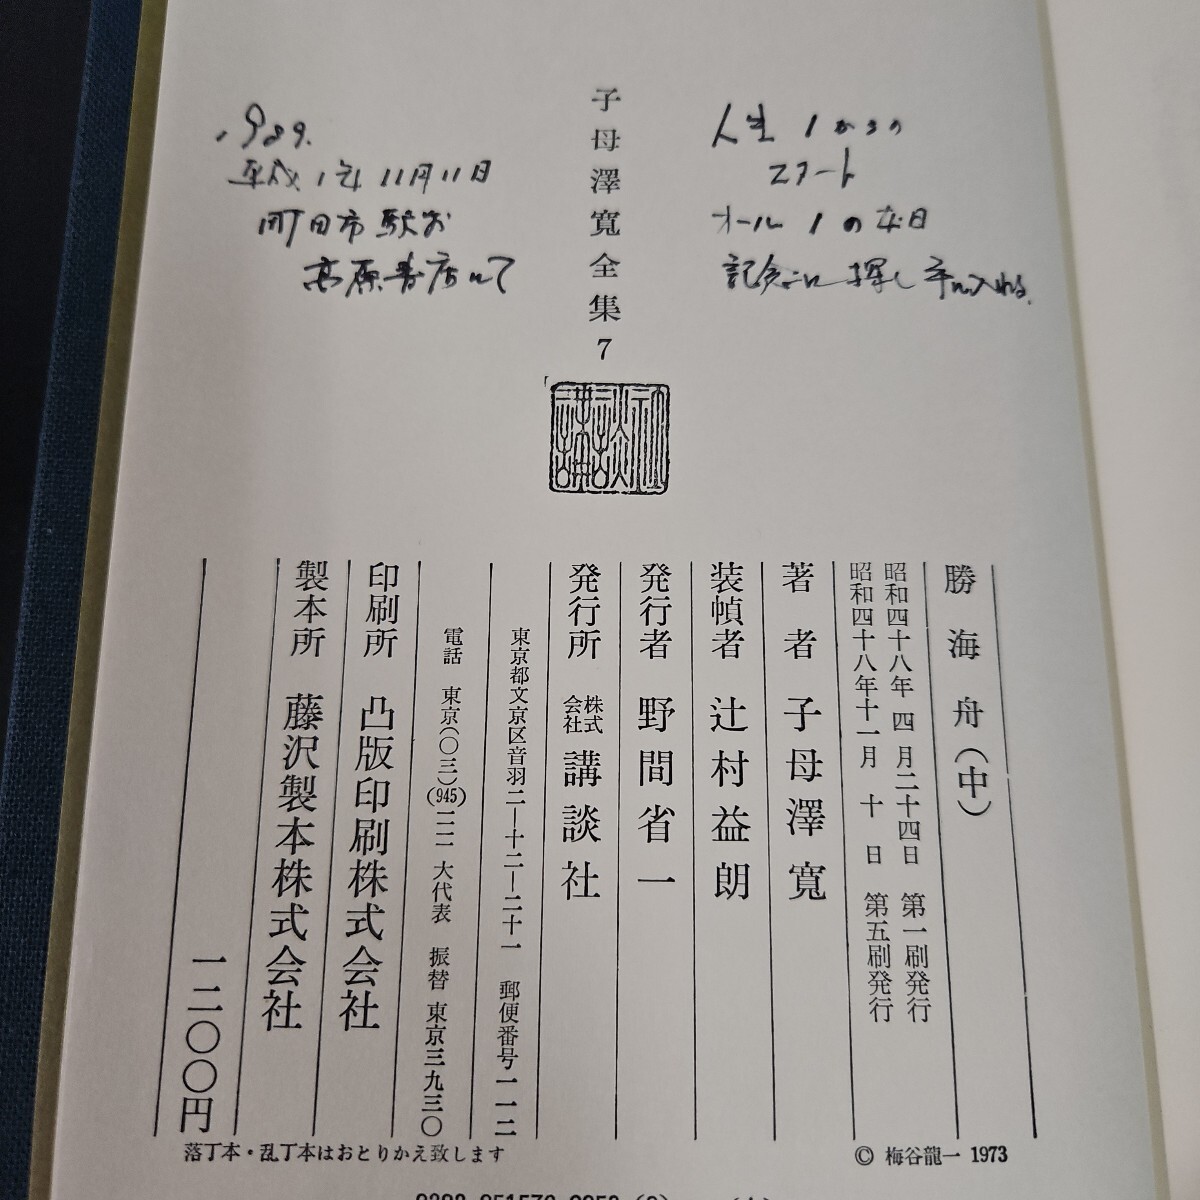 子母澤寛全集7
人生1からの
スタート
オール1の本日
記念に探し手に入れる.
1989.
平成1年11月11日
町田市駅前
高原書店にて
勝海舟(中)
昭和四十八年 四 月二十四日 第一刷発行
昭和四十八年十一月 十 日 第五刷発行
著者 子母澤寛
装幀者 辻村益朗
発行者 野間省一
発行所 株式会社 講談社
東京都文京区音羽二―十二―二十一 郵便番号一一二
電話 東京(〇三)(945)一一一一 大代表 振替 東京三九三〇
印刷所 凸版印刷株式会社
製本所 藤沢製本株式会社
一二〇〇円
落丁本・乱丁本はおとりかえ致します
© 梅谷龍一 1973